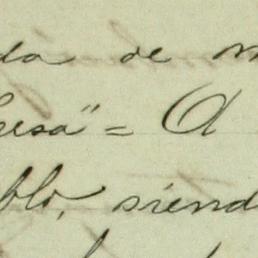 da de
esa" = A
blo, siend